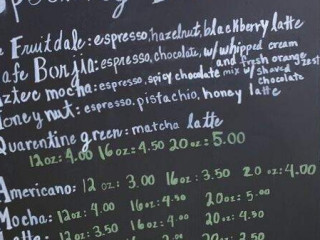 Fruitdale: espresso, hazelnut, blackberry latte
afe Borjia: espresso, chocolate, w/ whipped cream
and fresh orange zest
aztec mocha: espresso, spicy chocolate mix w/ shaved
chocolate
Honeynut: espresso, pistachio, honey latte
Quarentine green: matcha latte
12oz: 4.00 16oz: 4.50 20oz: 5.00
Americano: 12 oz: 3.00 16oz: 3.50 20 oz: 4.00
Mocha: 12oz: 4.00 16oz: 4.50 20oz: 5.00
12oz: 3.50 16oz: 4.00 20oz: 4.50